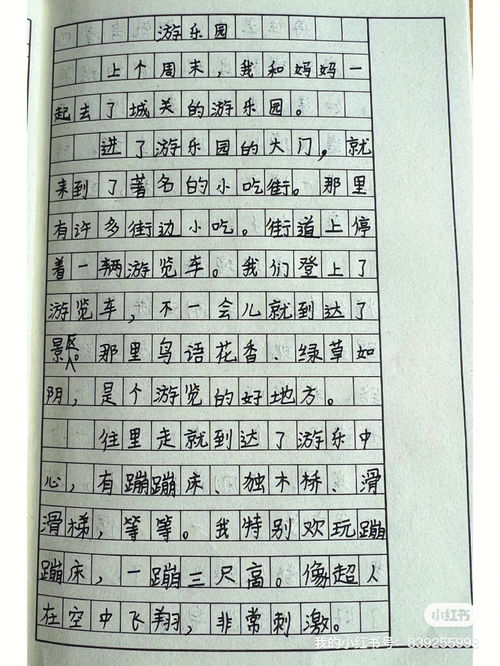 游乐园
上个周末，我和妈妈一
起去了城关的游乐园。
进了游乐园的大门，就
来到了著名的小吃街。那里
有许多街边小吃。街道上停
着一辆游览车。我们登上了
游览车，不一会儿就到达了
景区。那里鸟语花香、绿草如
阴，是个游览的好地方。
往里走就到达了游乐中
心，有蹦蹦床、独木桥、滑
滑梯，等等。我特别欢玩蹦
蹦床，一蹦三尺高。像超人
在空中飞翔，非常刺激。
小红书
我的小红书号：839255998